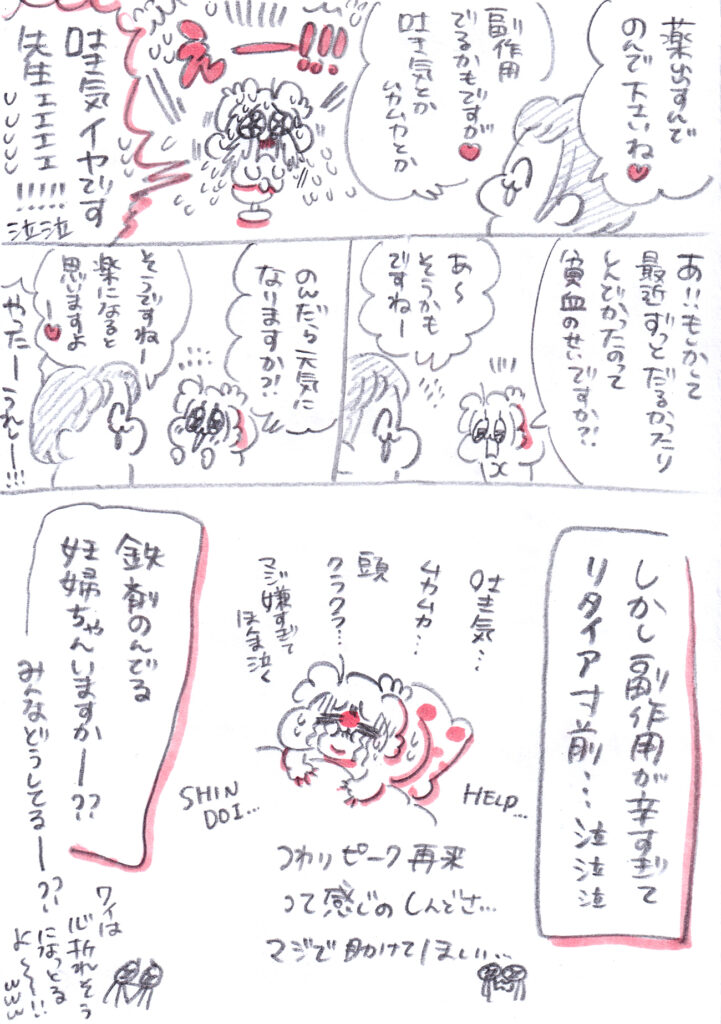 薬出すんで
のんで下さいね♥
副作用
でるかもですが♥
吐き気とか
ムカムカとか
えーー!!!
吐き気イヤです
先生ェェェェェ!!!!!
泣泣
あ!!もしかして
最近ずっとだるかったり
しんどかったのって
貧血のせいですか?!
あ〜
そうかも
ですねー
のんだら元気に
なりますか?!
そうですねー
楽になると
思いますよ
ー♥
やったーうれしー!!!
しかし副作用が辛すぎて
リタイア寸前…泣泣泣
吐き気…
ムカムカ…
頭
クラクラ…
マジ嫌すぎて
ほんま泣く
SHIN
DOI…
HELP…
つわりピーク再来
って感じのしんどさ…
マジで助けてほしい…
鉄剤のんでる
妊婦ちゃんいますかー??
みんなどうしてるー??
ワイは
心折れそう
になっとる
よ〜!!
www